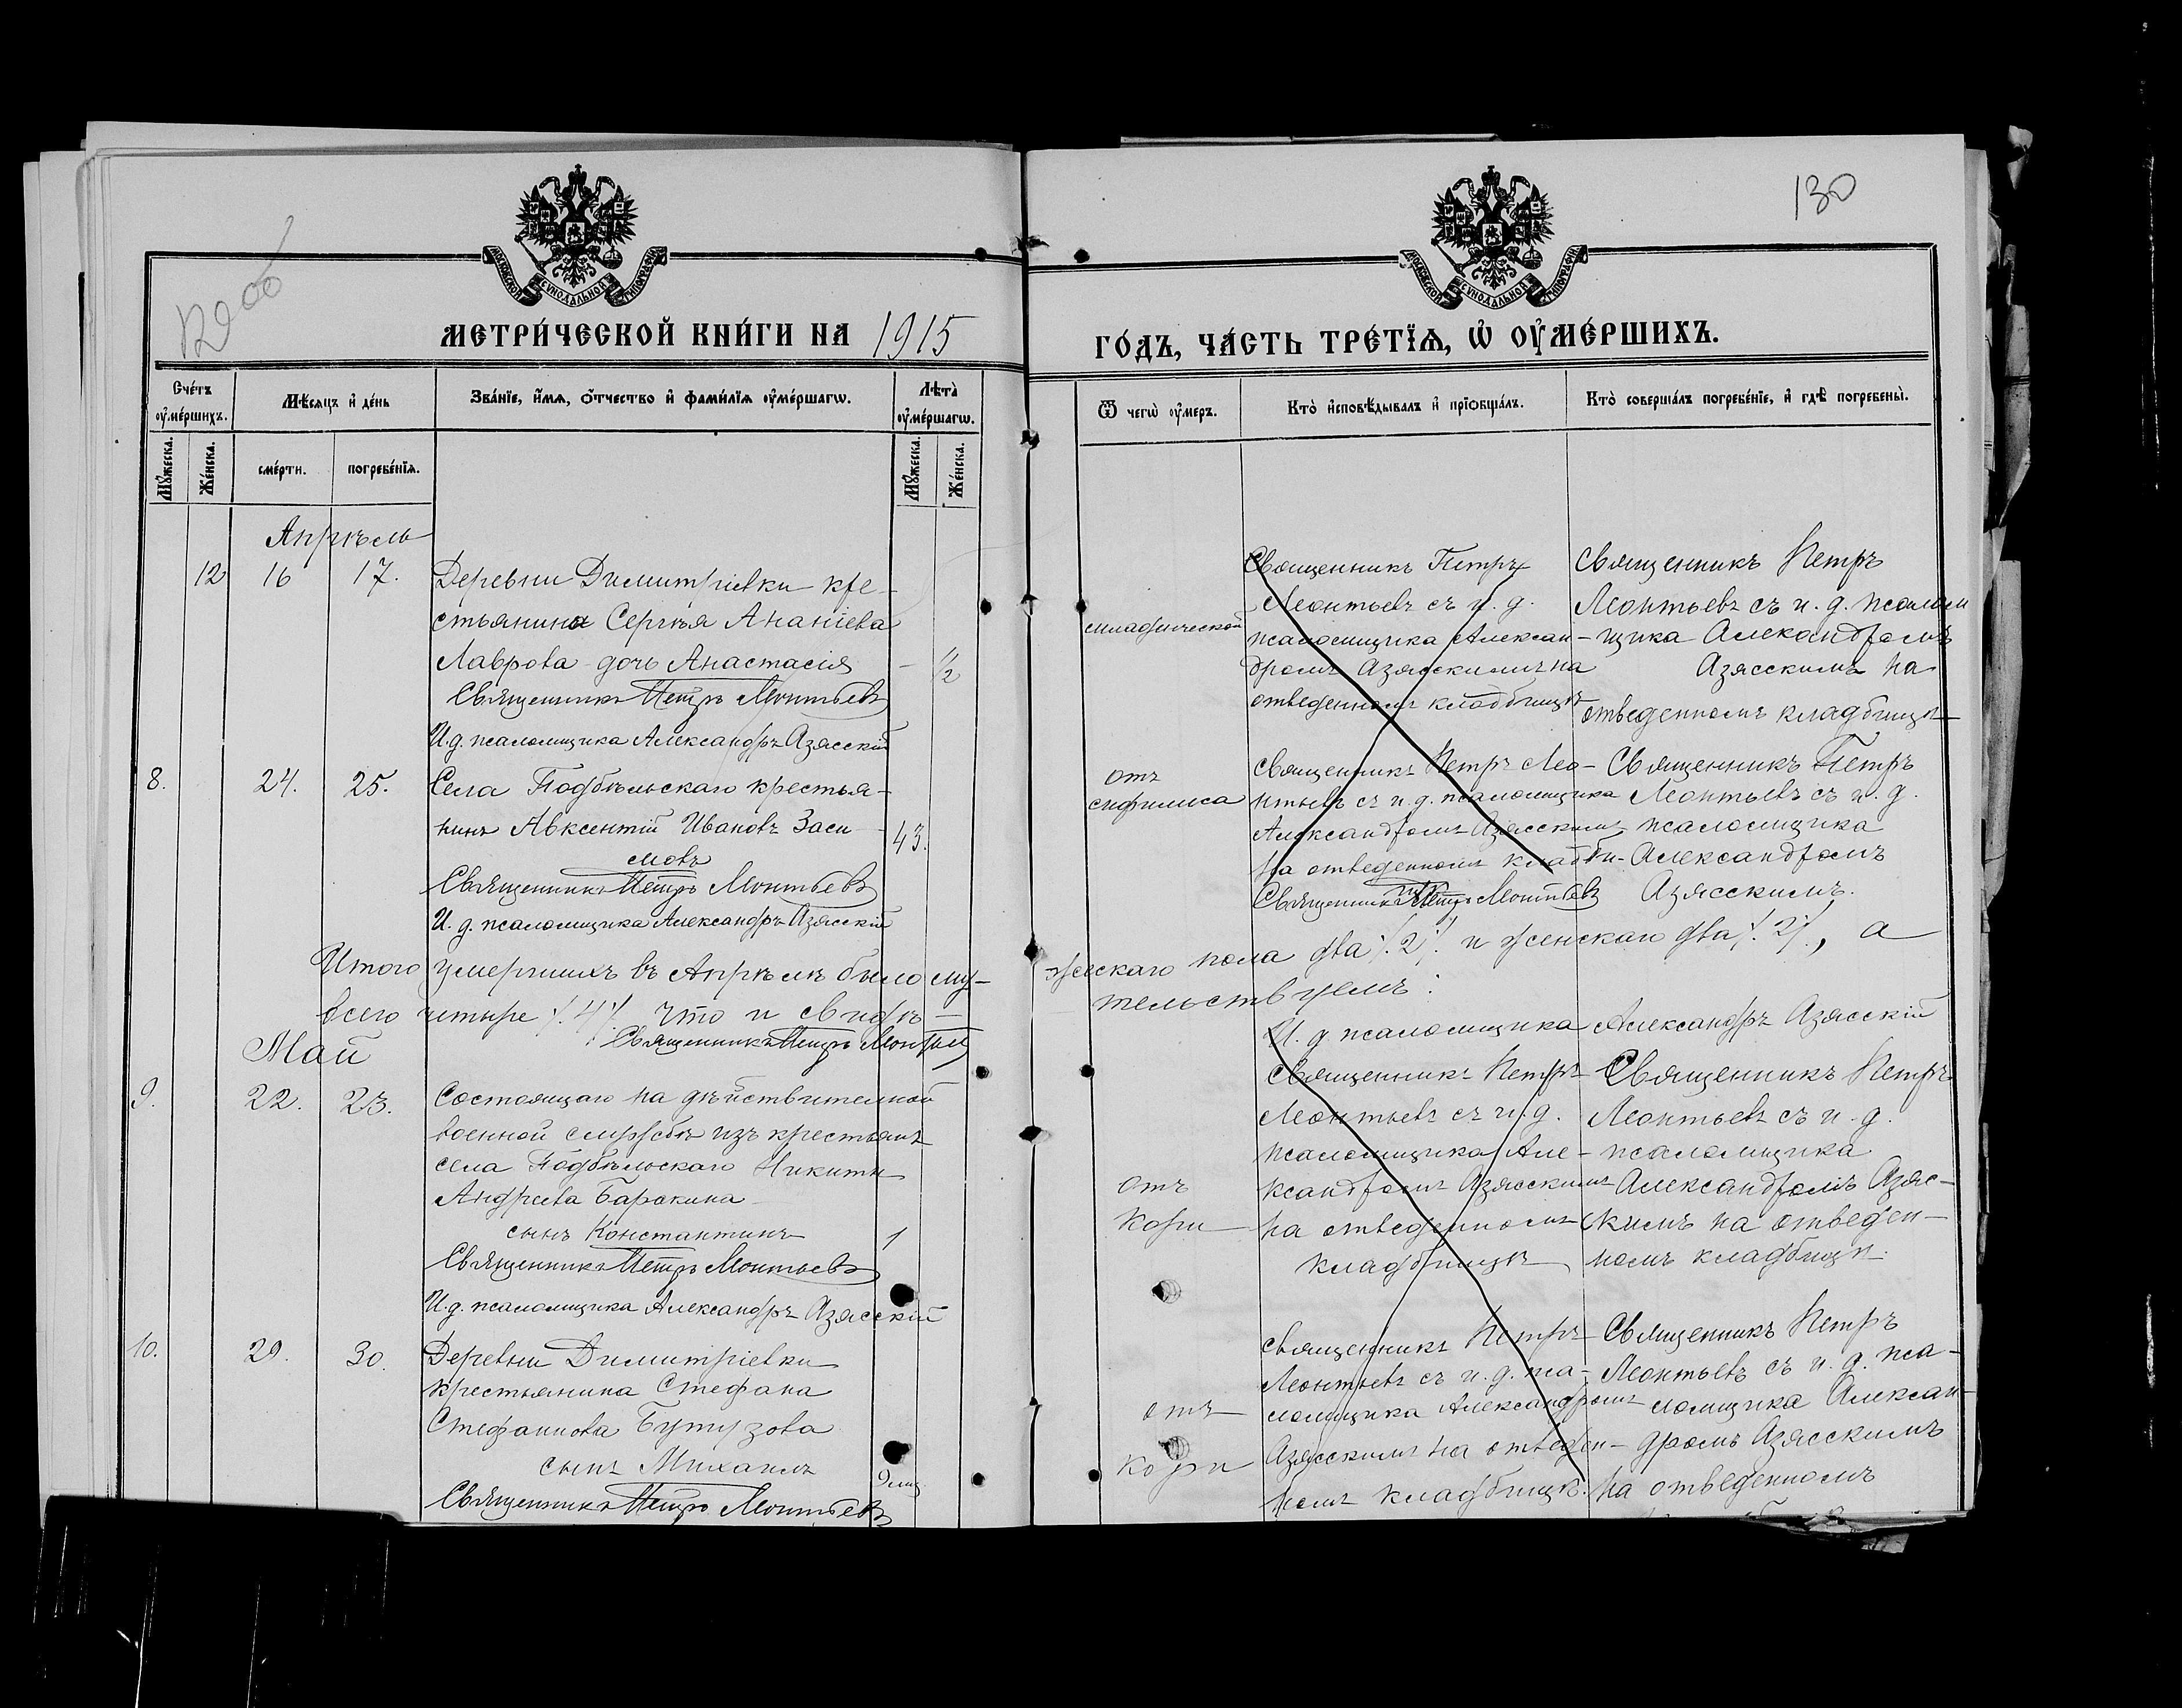 130
МОСКОВСКОЙ СУНОДАЛЬНОЙ ТИПОГРАФІИ
МОСКОВСКОЙ СУНОДАЛЬНОЙ ТИПОГРАФІИ
МЕТРИ́ЧЕСКОЙ КНИ́ГИ НА 1915
ГО́ДЪ, ЧА́СТЬ ТРЕ́ТІѦ, Ѡ ОУМЕ́РШИХЪ.
Сче́тъ оуме́ршихъ.
Мѣ́сяцъ и де́нь
Зва́ніе, и́мѧ, о́тчество и фами́лїѧ оуме́ршагѡ.
Лѣта̀ оуме́ршагѡ.
Ѿ чегѡ̀ оу́меръ.
Кто̀ исповѣ́дывалъ и прїобща́лъ.
Кто̀ соверша́лъ погребе́нїе, и гдѣ̀ погребены̀.
Мꙋ́жеска.
Же́нска.
сме́рти.
погребе́нїѧ.
Мꙋ́жеска.
Же́нска.
Апрѣль
12 16 17. Деревни Димитріевки кре-
стьянина Сергѣя Ананіева
Лаврова дочь Анастасія - 1/2
Священникъ Петръ Леонтьевъ
И.д. псаломщика Александръ Азясскій
младенческой
Священникъ Петръ
Леонтьевъ съ и.д.
псаломщика Алексан-
дромъ Азясскимъ на
отведенномъ кладбищѣ
Священникъ Петръ
Леонтьевъ съ и.д. псалом
щика Александромъ
Азясскимъ на
отведенномъ кладбищѣ
8. 24. 25. Села Подбѣльскаго крестья-
нинъ Авксентій Ивановъ Заси- 43.
мовъ
Священникъ Петръ Леонтьевъ
И. д. псаломщика Александръ Азясскій
отъ
сифилиса
Священникъ Петръ Лео-
нтьевъ съ и.д. псаломщика
Александромъ Азясскимъ
на отведенномъ кладби-
Священникъ Петръ Леонтьевъ
Священникъ Петръ
Леонтьевъ съ и.д.
псаломщика
Александромъ
Азясскимъ.
Итого умершихъ въ Апрѣлѣ было му-
жескаго пола два /.2/. и женскаго два /.2/., а
всего четыре /.4/. что и свидѣ-
тельствуемъ:
Священникъ Петръ Леонтьевъ
И. д. псаломщика Александръ Азясскій
Май
9. 22. 23. Состоящаго на дѣйствительной
военной службѣ изъ крестьянъ
села Подбѣльскаго Никиты
Андреева Баракина
сынъ Константинъ 1
Священникъ Петръ Леонтьевъ
И.д. псаломщика Александръ Азясскій
отъ
кори
Священникъ Петръ
Леонтьевъ съ и.д.
псаломщика Але-
ксандромъ Азясскимъ
на отведенномъ
кладбищѣ
Священникъ Петръ
Леонтьевъ съ и.д.
псаломщика
Александромъ Азяс-
скимъ на отведен-
номъ кладбищѣ.
10. 29. 30. Деревни Димитріевки
крестьянина Стефана
Стефанова Бутузова
сынъ Михаилъ 9 мц
Священникъ Петръ Леонтьевъ
отъ
кори
Священникъ Петръ
Леонтьевъ съ и.д. пса-
ломщика Александромъ
Азясскимъ на отведен-
номъ кладбищѣ.
Священникъ Петръ
Леонтьевъ съ и.д. пса-
ломщика Алексан-
дромъ Азясскимъ
на отведенномъ